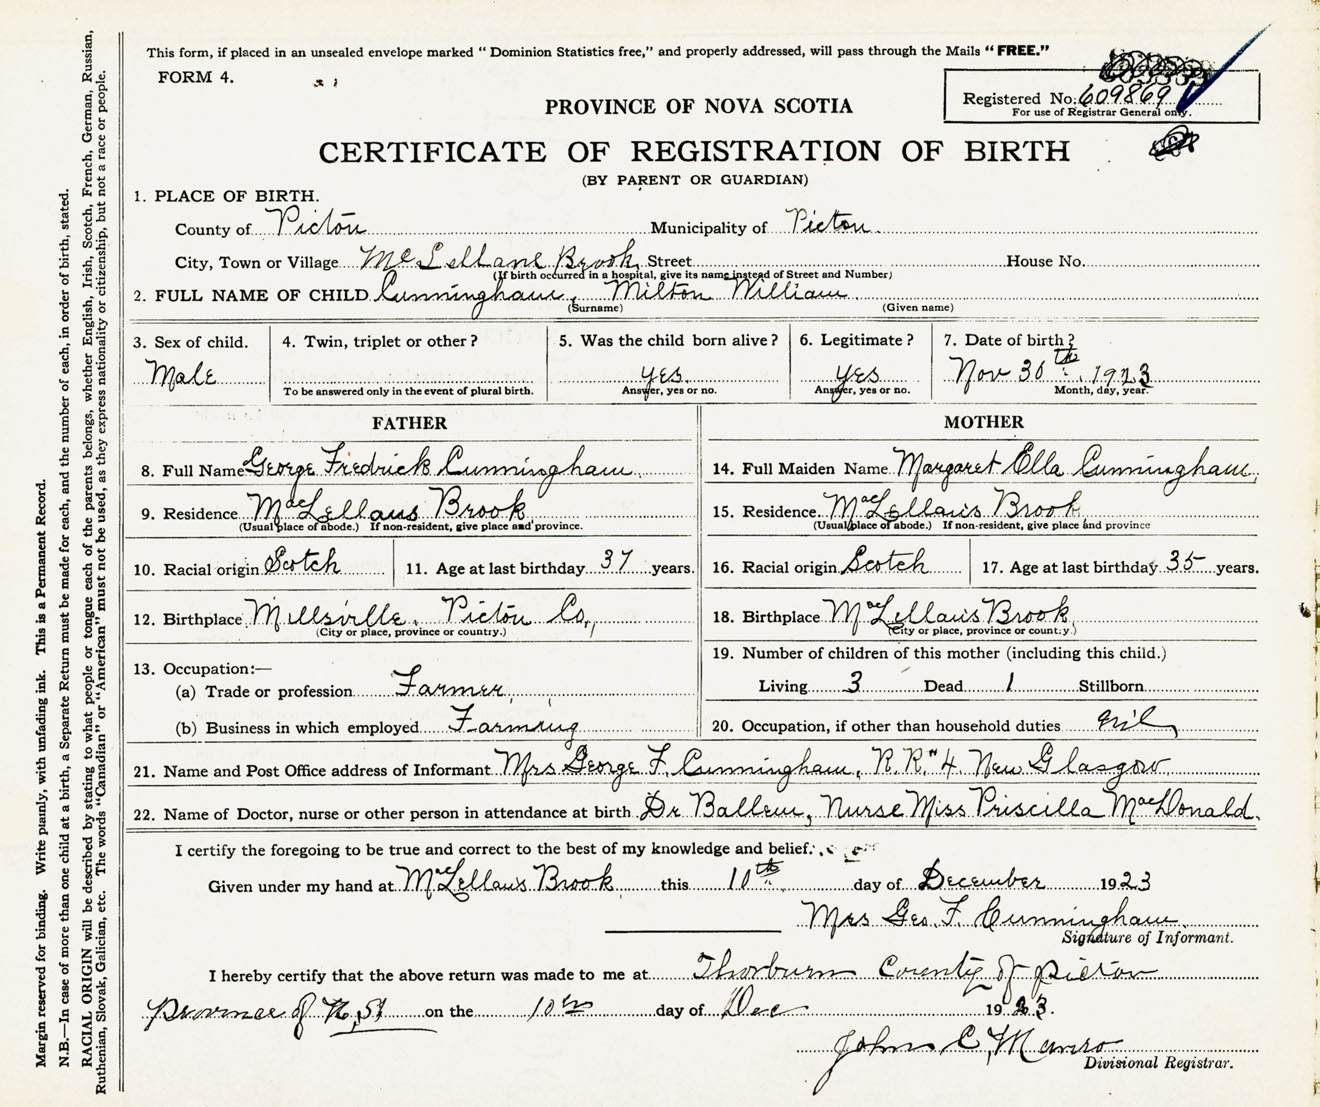 This form, if placed in an unsealed envelope marked “ Dominion Statistics free,” and properly addressed, will pass through the Mails “ FREE.”
FORM 4.
Registered No. 609869
For use of Registrar General only.
PROVINCE OF NOVA SCOTIA
CERTIFICATE OF REGISTRATION OF BIRTH
(BY PARENT OR GUARDIAN)
1. PLACE OF BIRTH.
County of Pictou Municipality of Pictou
City, Town or Village McLellans Brook Street House No.
(If birth occurred in a hospital, give its name instead of Street and Number)
2. FULL NAME OF CHILD Cunningham, Milton William
(Surname) (Given name)
3. Sex of child. 4. Twin, triplet or other? 5. Was the child born alive? 6. Legitimate? 7. Date of birth?
Male yes yes Nov 30th 1923
To be answered only in the event of plural birth. Answer, yes or no. Answer, yes or no. Month, day, year.
FATHER MOTHER
8. Full Name George Fredrick Cunningham 14. Full Maiden Name Margaret Ella Cunningham
9. Residence MacLellans Brook 15. Residence. MacLellans Brook
(Usual place of abode.) If non-resident, give place and province. (Usual place of abode.) If non-resident, give place and province
10. Racial origin Scotch 11. Age at last birthday 37 years. 16. Racial origin Scotch 17. Age at last birthday 35 years.
12. Birthplace Millsville, Pictou Co., 18. Birthplace MacLellans Brook
(City or place, province or country.) (City or place, province or country.)
13. Occupation:— 19. Number of children of this mother (including this child.)
(a) Trade or profession Farmer Living 3 Dead 1 Stillborn
(b) Business in which employed Farming 20. Occupation, if other than household duties nil
21. Name and Post Office address of Informant Mrs George F. Cunningham, R.R."4. New Glasgow
22. Name of Doctor, nurse or other person in attendance at birth Dr Ballem, Nurse Miss Priscilla MacDonald.
I certify the foregoing to be true and correct to the best of my knowledge and belief.
Given under my hand at McLellans Brook this 10th day of December 1923
Mrs Geo. F. Cunningham
Signature of Informant.
I hereby certify that the above return was made to me at Thorburn County of Pictou
Province of N,S, on the 10th day of Dec 1923.
John C, Munro
Divisional Registrar.
Margin reserved for binding. Write plainly, with unfading ink. This is a Permanent Record.
N.B.—In case of more than one child at a birth, a Separate Return must be made for each, and the number of each, in order of birth, stated.
RACIAL ORIGIN will be described by stating to what people or tongue each of the parents belongs, whether English, Irish, Scotch, French, German, Russian,
Ruthenian, Slovak, Galician, etc. The words “Canadian” or “American” must not be used, as they express nationality or citizenship, but not a race or people.